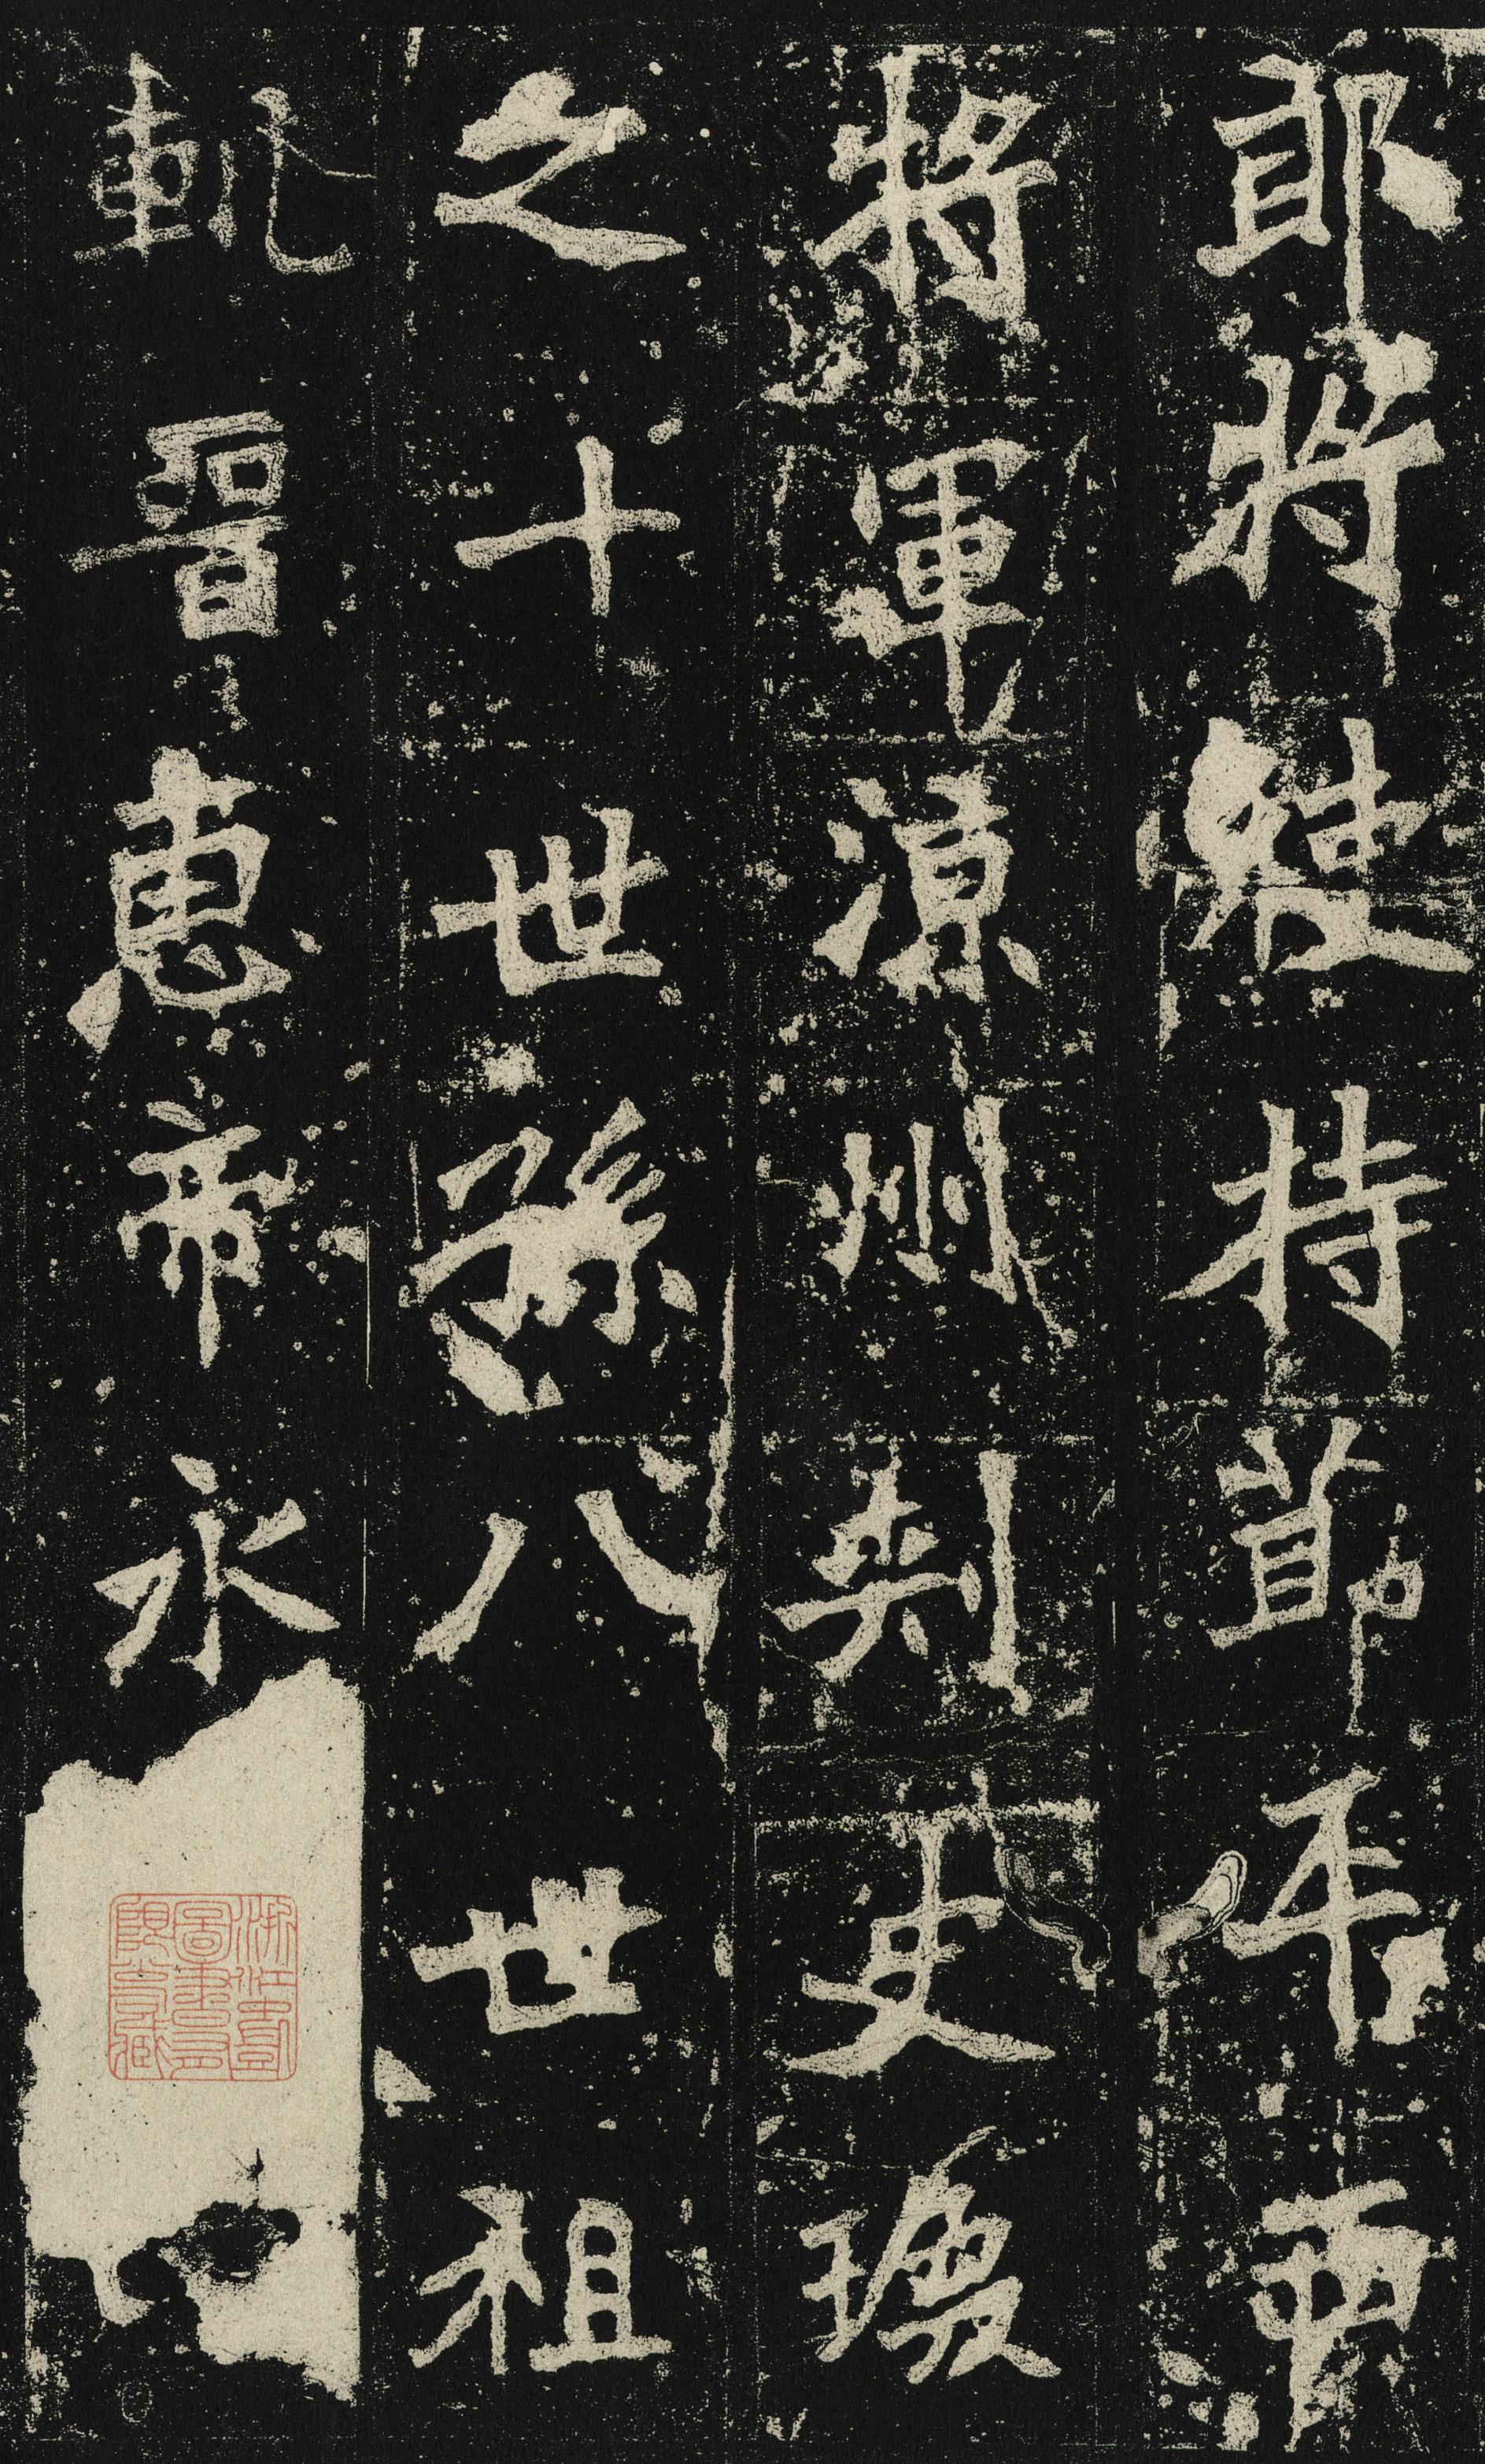 郎將使持節平西
將軍涼州刺史瑍
之十世孫八世祖
軌晉惠帝永